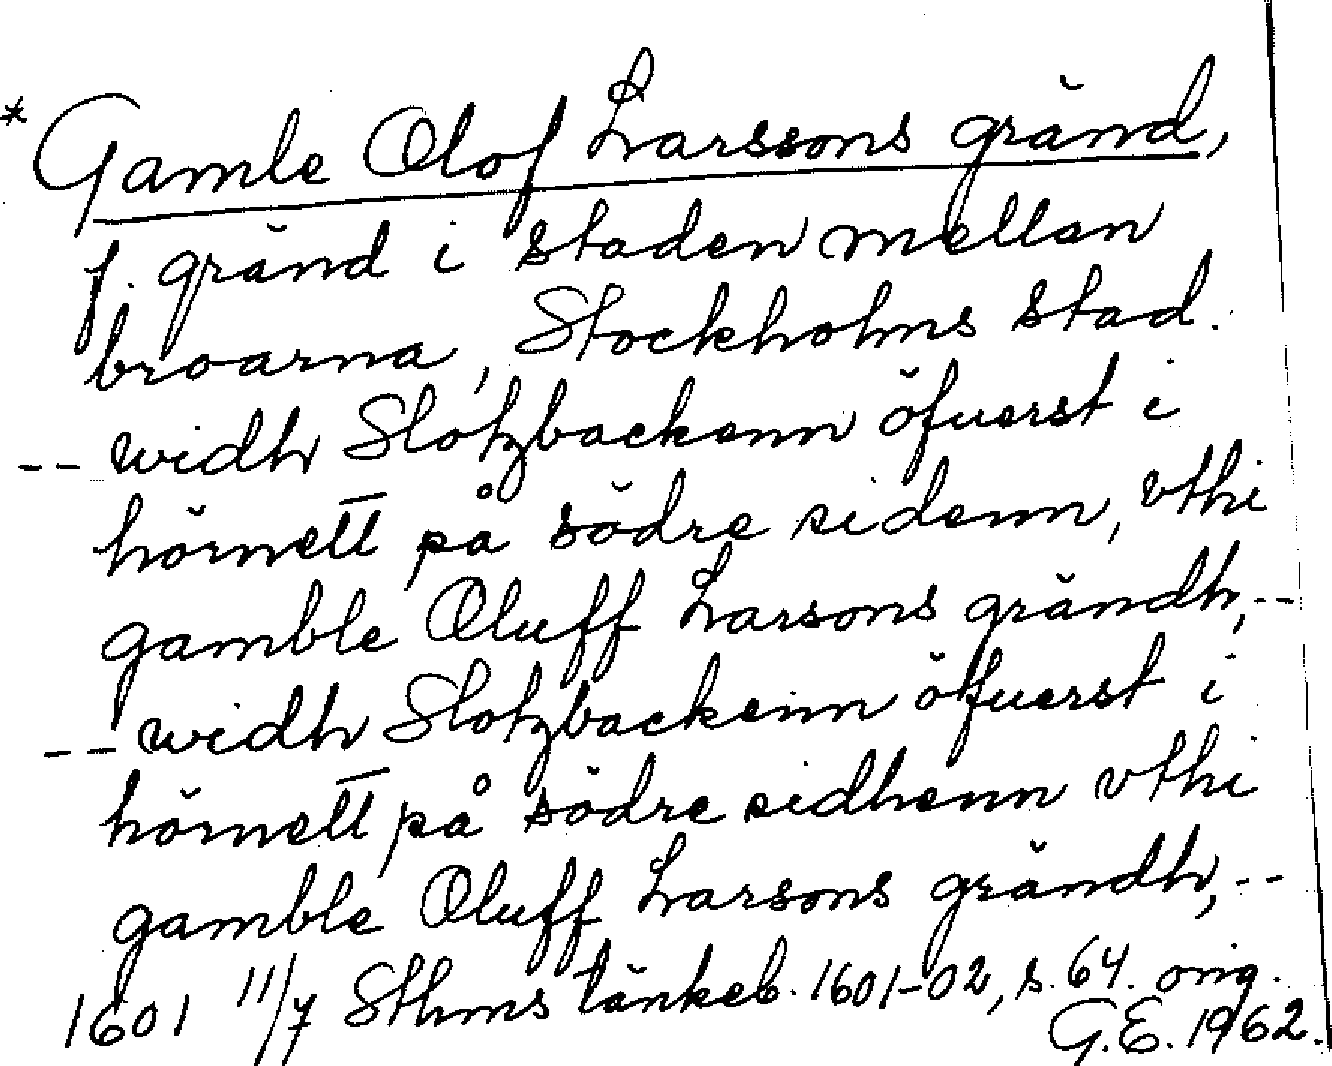 * Gamle Olof Larssons gränd,
f. gränd i staden mellan
broarna, Stockholms stad.
-- widh Slotzbackenn öfuerst i
hörnett på södre sidenn, vthi
gamble Oluff Larsons grändh, --
-- widh Slotzbackenn öfuerst i
hörnett på södre sidhenn vthi
gamble Oluff Larsons grändh, --
1601 11/7 Sthms tänkeb. 1601-02, s. 64. orig.
G.E. 1962.